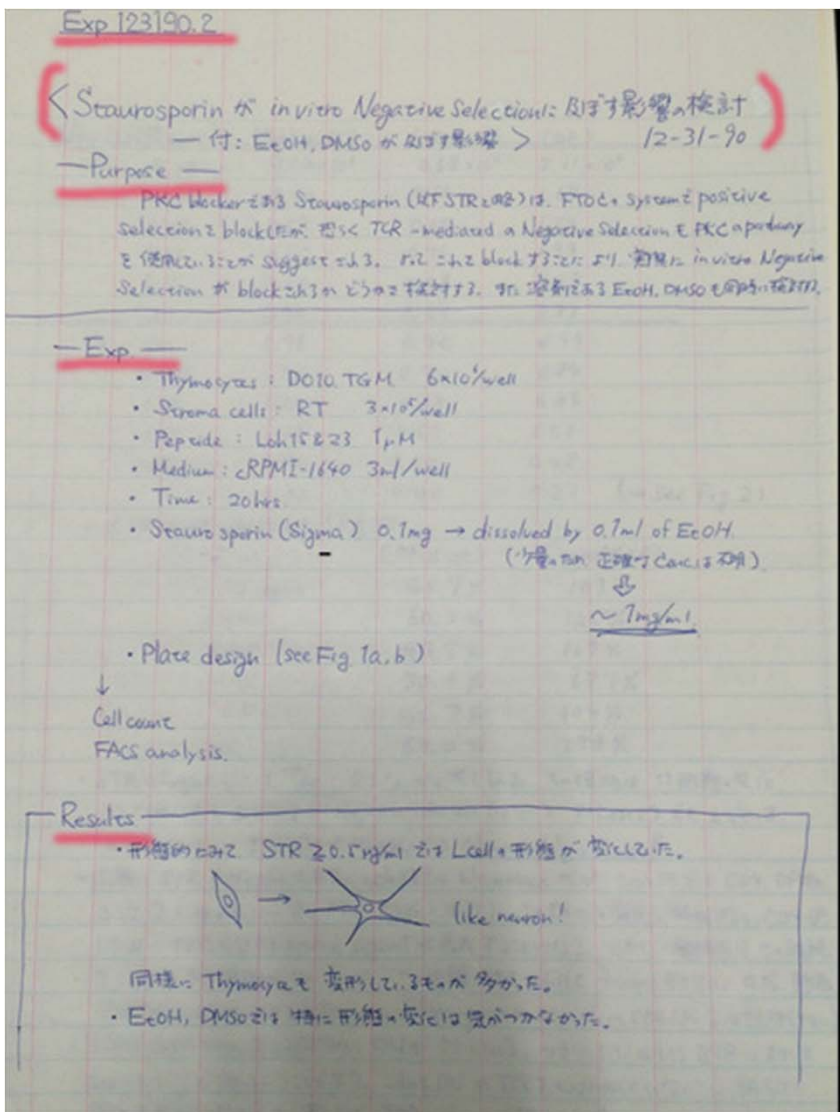 Exp 123190.2
< Staurosporin が in vitro Negative Selectionに及ぼす影響の検討
— 付: EtOH, DMSO が及ぼす影響 > 12-31-90
— Purpose —
PKC blockerである Staurosporin (以下STRと略)は、FTOCの systemで positive
selectionを blockしたが、恐らく TCR-mediated の Negative Selectionも PKCのpathway
を使用していることが suggestされる。よってこれをblockすることにより in vitro Negative
Selection が blockされるかどうかを検討する。また溶剤である EtOH, DMSOも同時に検討する。
— Exp —
・Thymocytes : DO10.TGM 6×10⁶/well
・Stroma cells : RT 3×10⁵/well
・Peptide : 1μM
・Medium : cRPMI-1640 3ml/well
・Time : 20hrs
・Staurosporin (Sigma) 0.1mg → dissolved by 0.1ml of EtOH.
(少量のため 正確な conc.は不明)
⇩
～1mg/ml
・Plate design (see Fig 1a, b)
↓
Cell count
FACS analysis.
Results
・形態的にみて STR ≧0.5 では Lcellの形態が変化していた。
→ like neuron!
同様に Thymocyteも変形しているものが多かった。
・EtOH, DMSOでは特に形態の変化は気がつかなかった。